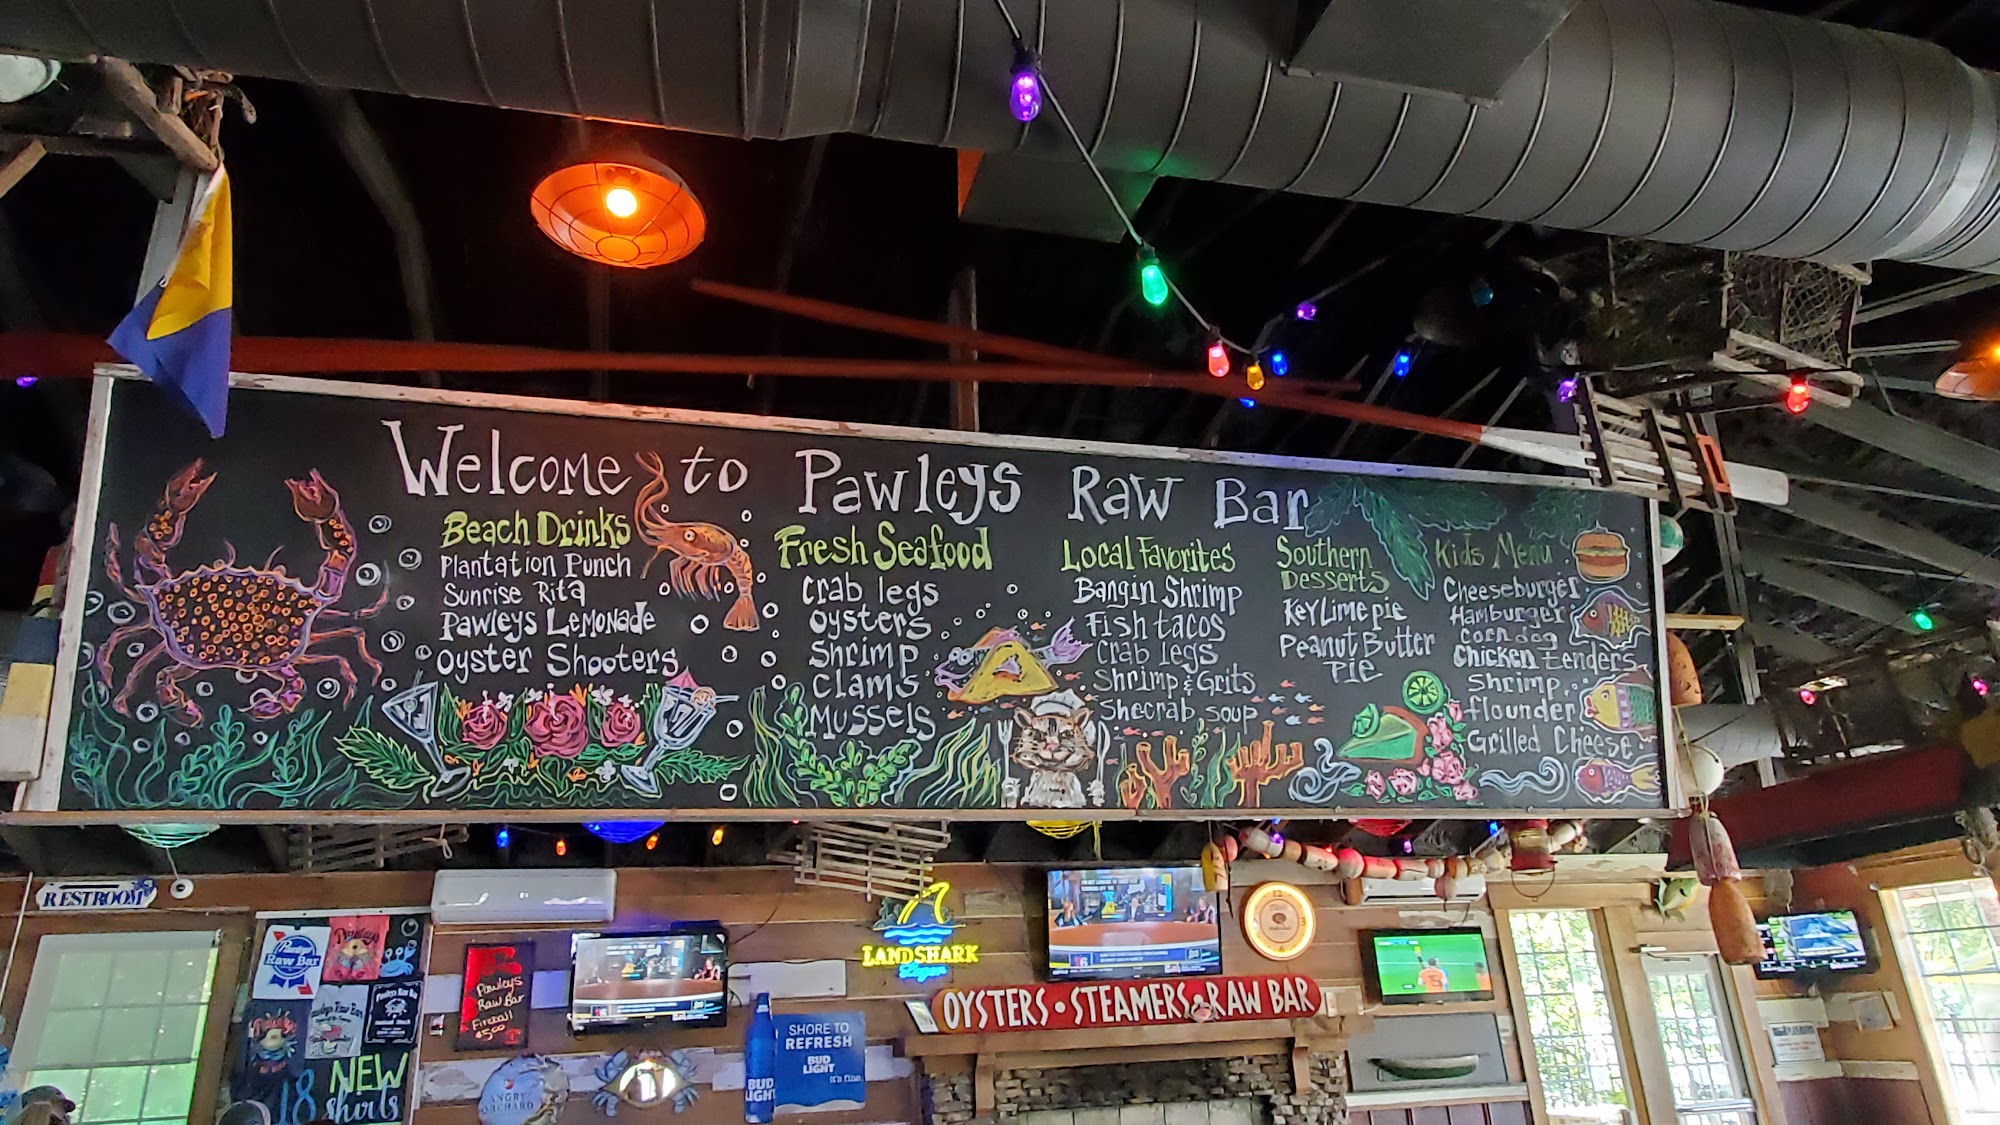 Welcome to Pawleys Raw Bar
Beach Drinks
Plantation Punch
Sunrise Rita
Pawleys Lemonade
Oyster Shooters
Fresh Seafood
Crab legs
oysters
Shrimp
Clams
Mussels
Local Favorites
Bangin Shrimp
Fish tacos
Crab legs
Shrimp & Grits
Shecrab soup
Southern
Desserts
Key Lime pie
Peanut Butter
Pie
Kids Menu
Cheeseburger
Hamburger
Corn dog
Chicken tenders
Shrimp
flounder
Grilled Cheese
RESTROOM
Raw Bar
Pawleys
Raw Bar
Fireball
$5.00
NEW
18 shirts
LANDSHARK
Lager
OYSTERS • STEAMERS & RAW BAR
SHORE TO
REFRESH
BUD
LIGHT
BUD
LIGHT
ANGRY
ORCHARD